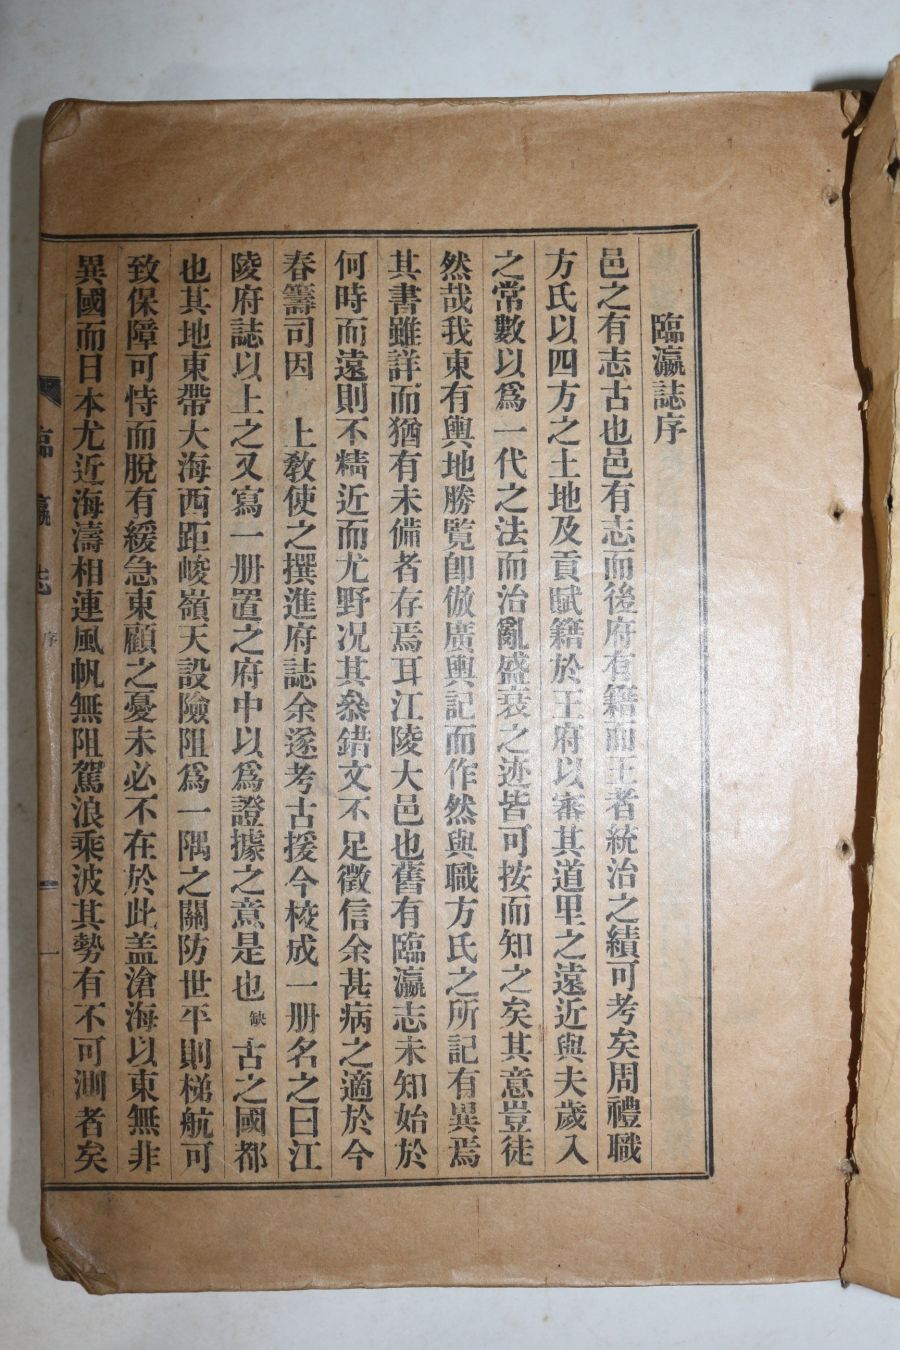 臨瀛誌序
邑之有志古也邑有志而後府有籍而王者統治之績可考矣周禮職
方氏以四方之土地及貢賦籍於王府以審其道里之遠近與夫歲入
之常數以爲一代之法而治亂盛衰之迹皆可按而知之矣其意豈徒
然哉我東有輿地勝覧卽倣廣輿記而作然與職方氏之所記有異焉
其書雖詳而猶有未備者存焉耳江陵大邑也舊有臨瀛志未知始於
何時而遠則不精近而尤野况其叅錯文不足徵信余甚病之適於今
春籌司因　上教使之撰進府誌余遂考古援今校成一册名之曰江
陵府誌以上之又寫一册置之府中以爲證據之意是也缺古之國都
也其地東帶大海西距峻嶺天設險阻爲一隅之關防世平則梯航可
致保障可恃而脫有緩急東顧之憂未必不在於此盖滄海以東無非
異國而日本尤近海濤相連風帆無阻駕浪乘波其勢有不可測者矣
臨瀛志　序　一